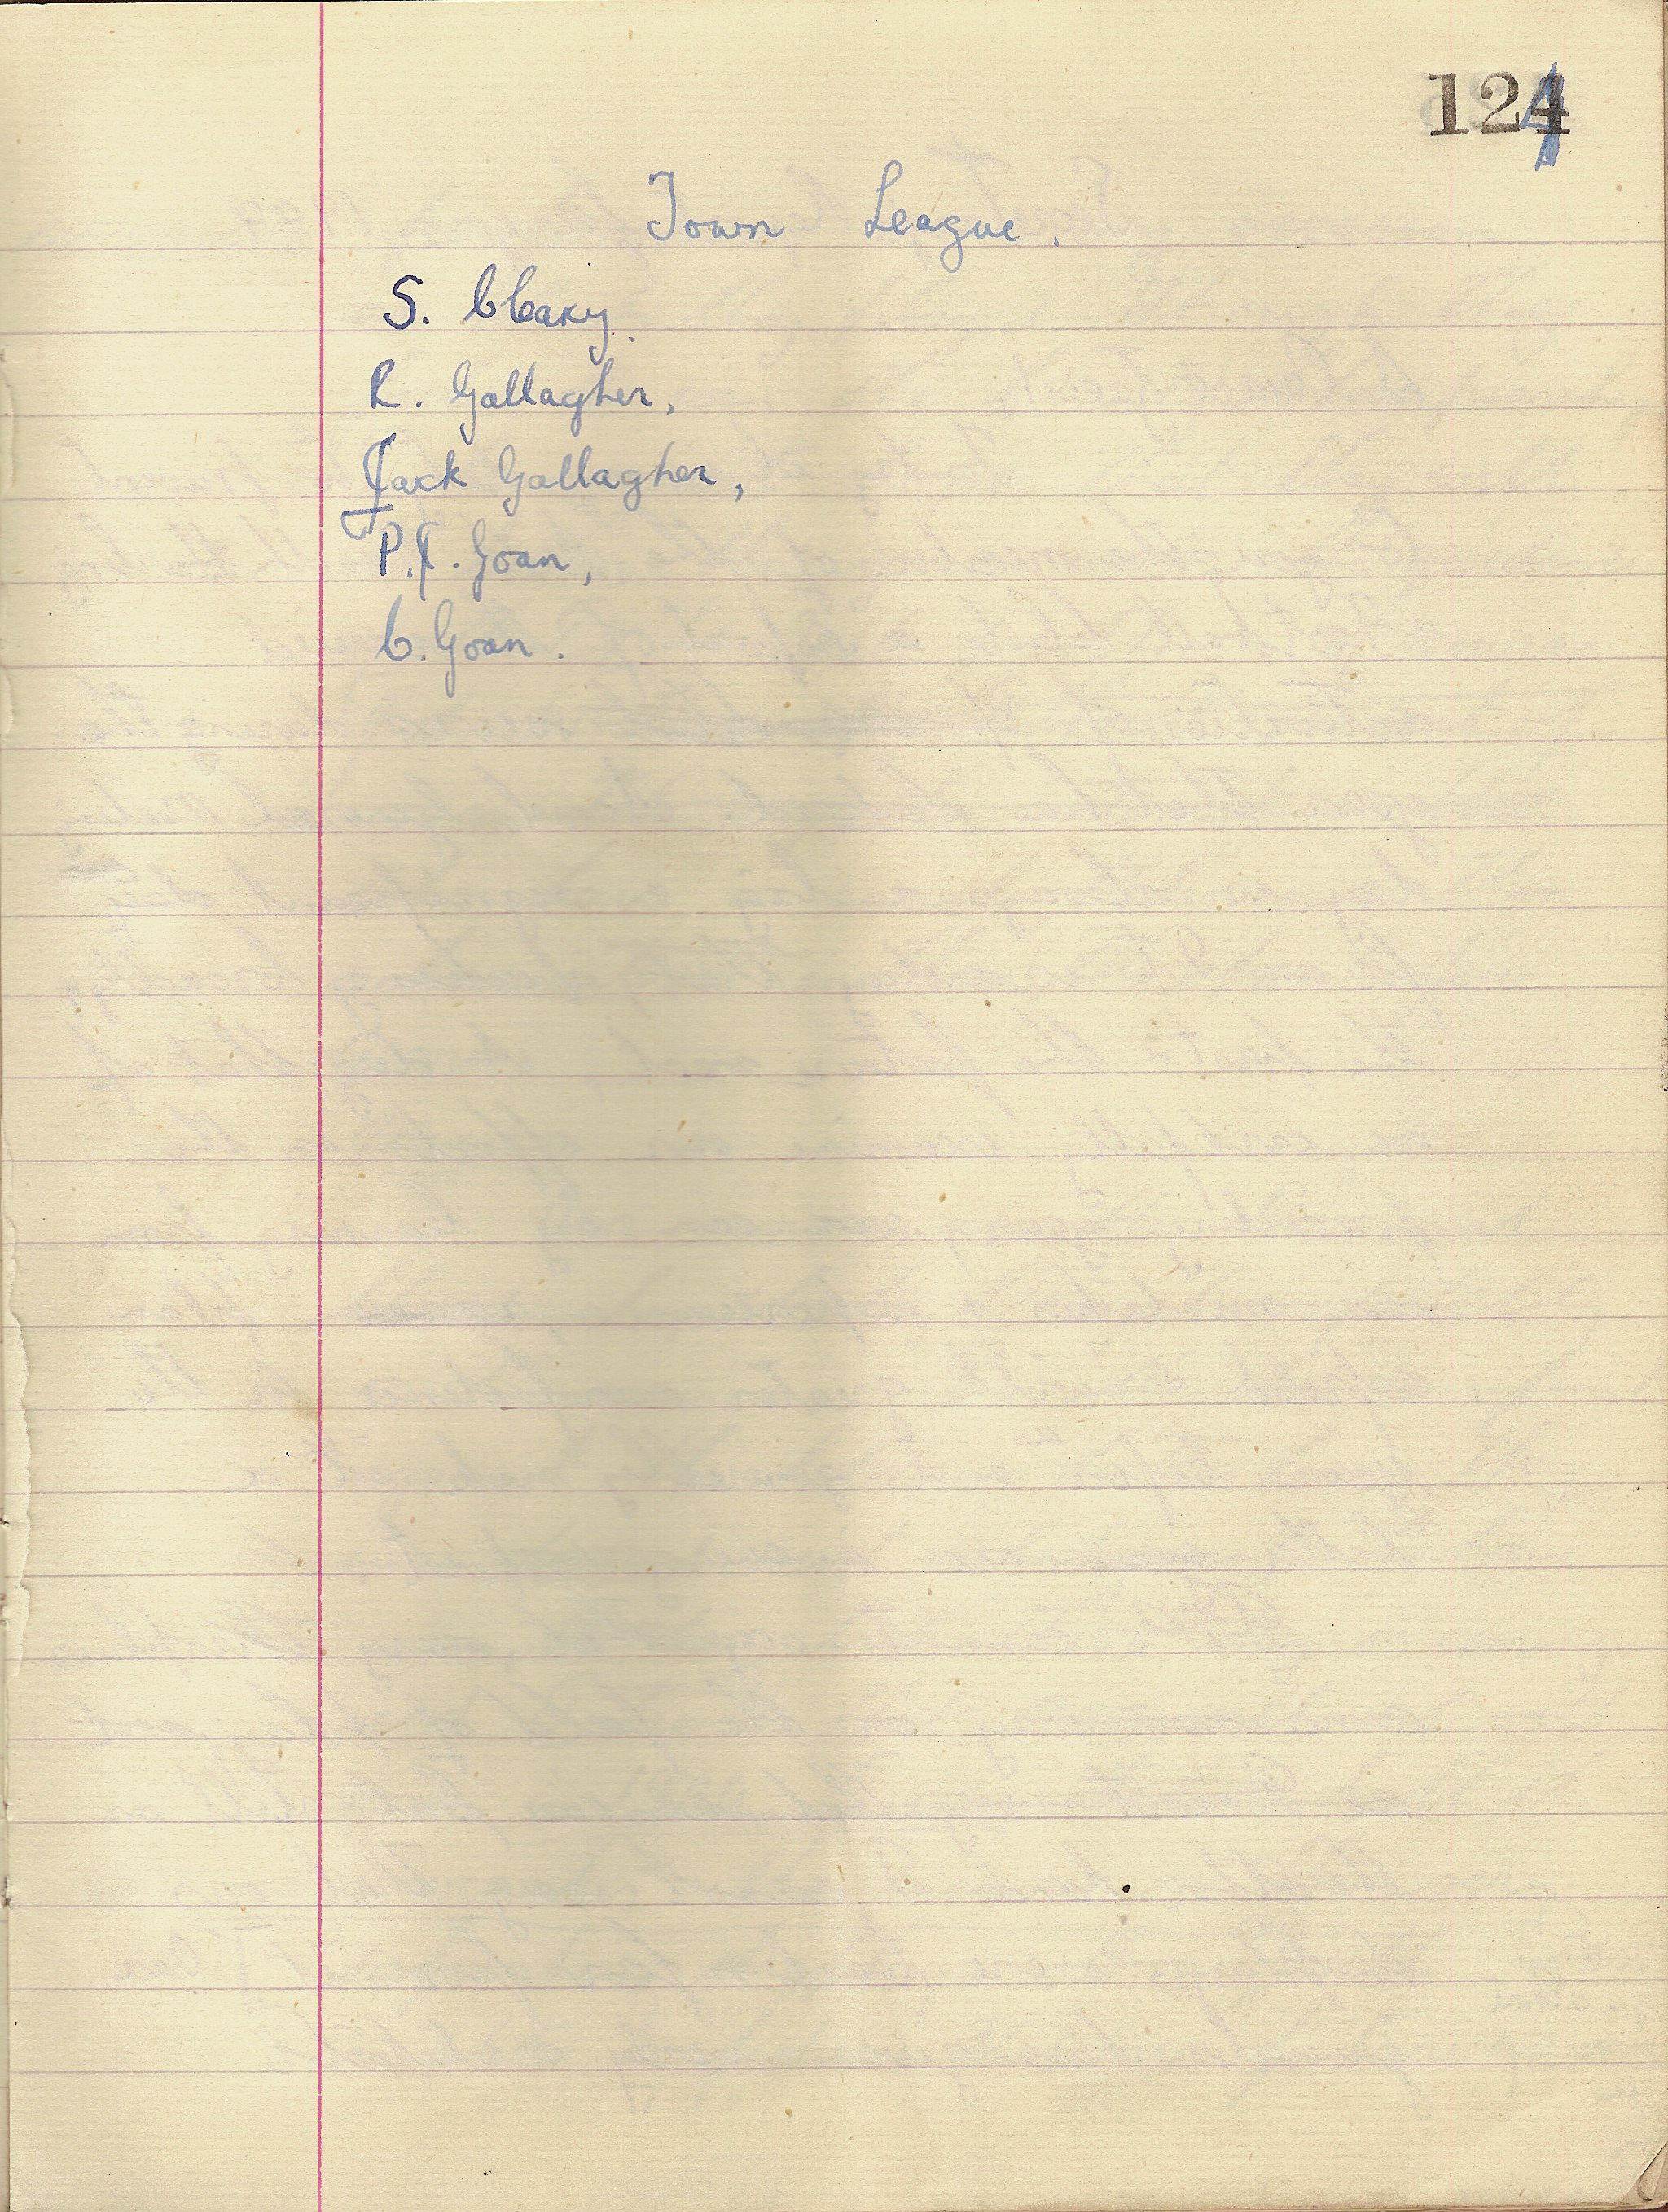 124
Town League.
S. Cleary.
R. Gallagher,
Jack Gallagher,
P.J. Goan,
C. Goan.